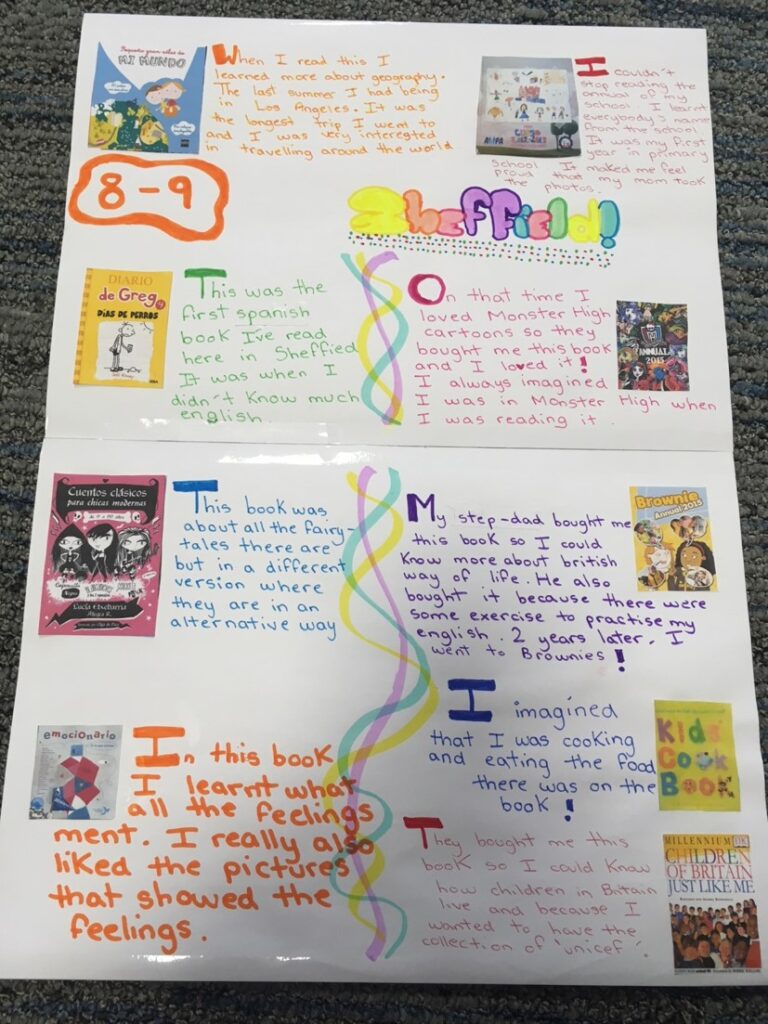 Pequeño gran atlas de
MI MUNDO
sm
When I read this I
learned more about geography.
The last summer I had being
in Los Angeles. It was
the longest trip I went to
and I was very interested
in travelling around the world
AMPA
I couldn't
stop reading the
annual of my
school. I learnt
everybody's name
from the school
It was my first
year in primary
school. It maked me feel
proud that my mom took
the photos.
8-9
Sheffield!
DIARIO
de Greg 4
DÍAS DE PERROS
Jeff Kinney
This was the
first spanish
book I've read
here in Sheffied
It was when I
didn't know much
english.
On that time I
loved Monster High
cartoons so they
bought me this book
and I loved it!
I always imagined
I was in Monster High when
I was reading it.
ANNUAL
2015
Cuentos clásicos
para chicas modernas
Lucía Etxebarria
Allegra R.
This book was
about all the fairy-
tales there are
but in a different
version where
they are in an
alternative way
My step-dad bought me
this book so I could
know more about british
way of life. He also
bought it because there were
some exercise to practise my
english. 2 years later, I
went to Brownies!
Brownie
Annual 2015
emocionario
In this book
I learnt what
all the feelings
ment. I really also
liked the pictures
that showed the
feelings.
I imagined
that I was cooking
and eating the food
there was on the
book!
Kids'
Cook
Book
They bought me this
book so I could know
how children in Britain
live and because I
wanted to have the
collection of 'unicef'.
MILLENNIUM DK
CHILDREN
OF BRITAIN
JUST LIKE ME